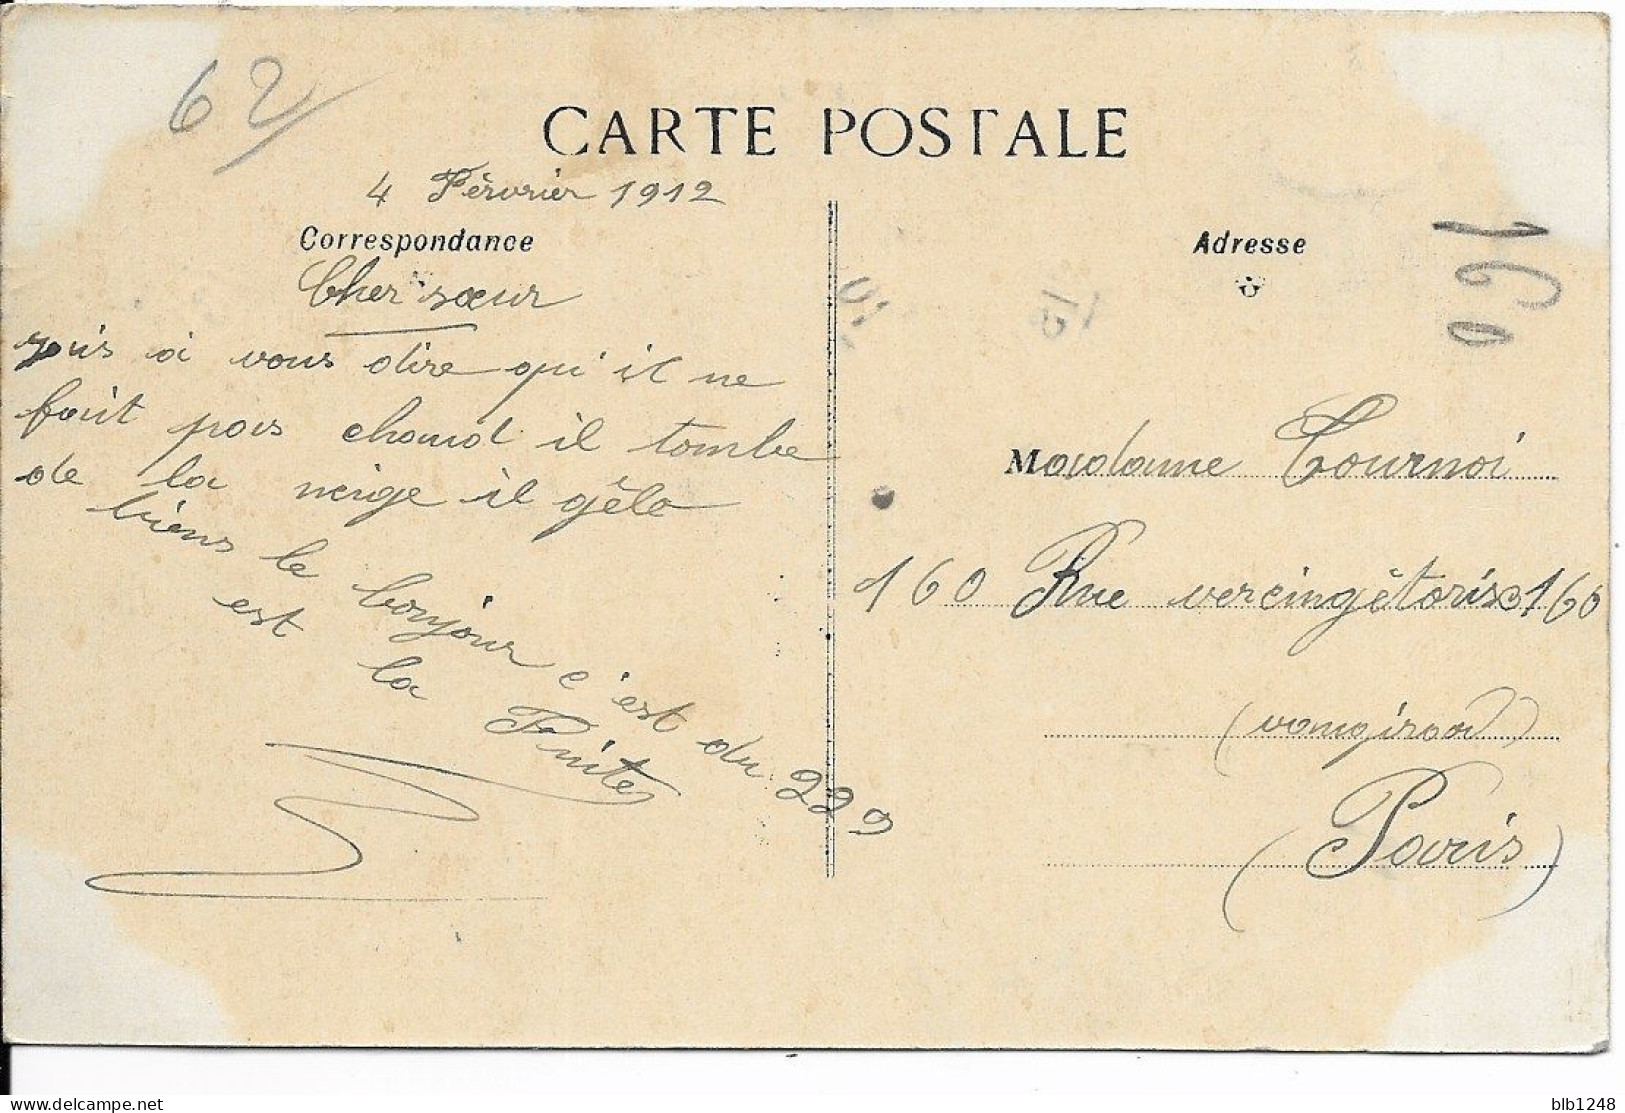 62
CARTE POSTALE
4 Février 1912
Correspondance
Cher sœur
suis a vous dire qui il ne
fait pas chaud il tombe
de la neige il gêle
biens le bonjour c'est du 229
est la Fuite
Adresse
160
Madame Tournoi
160 Rue vercingétorise 160
(vaugirad)
(Paris)
delcampe.net
blb1248